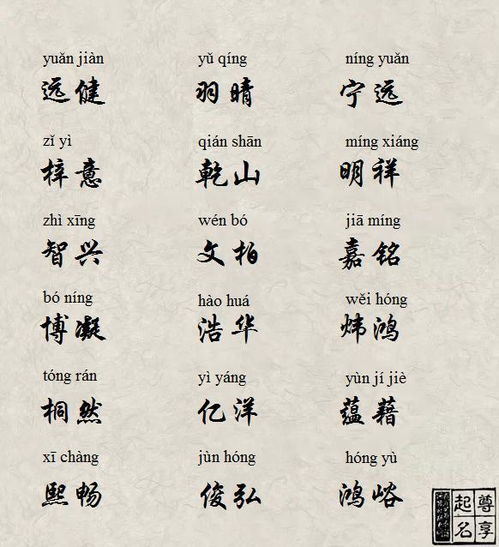 yuǎn jiàn yǔ qíng níng yuǎn
远健 羽晴 宁远
zǐ yì qián shān míng xiáng
梓意 乾山 明祥
zhì xīng wén bó jiā míng
智兴 文柏 嘉铭
bó níng hào huá wěi hóng
博凝 浩华 炜鸿
tóng rán yì yáng yùn jí jiè
桐然 亿洋 蕴藉
xī chàng jùn hóng hóng yù
熙畅 俊弘 鸿峪
尊享
起名